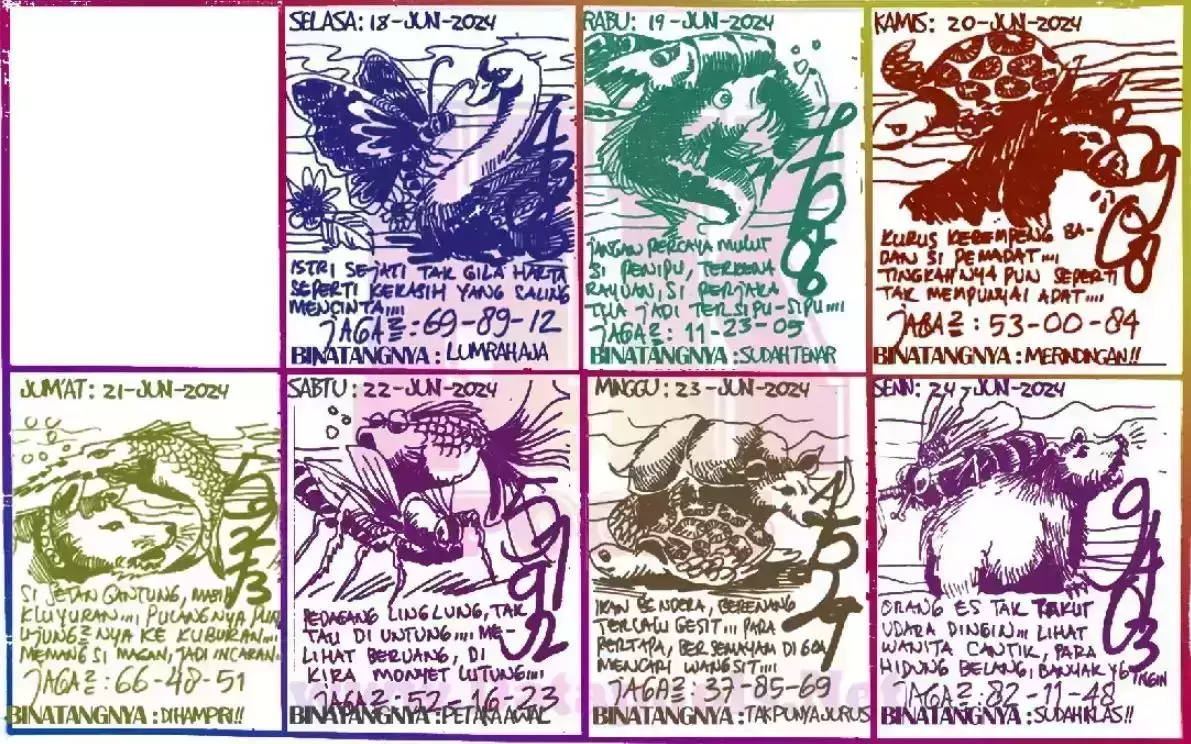 SELASA: 18-JUN-2024
ISTRI SEJATI TAK GILA HARTA
SEPERTI KEKASIH YANG SALING
MENCINTA....
JAGA2: 69-89-12
BINATANGNYA : LUMRAHAJA
RABU: 19-JUN-2024
JANGAN PERCAYA MULUT
SI PENIPU, TERKENA
RAYUAN, SI PERJAKA
TUA JADI TERSIPU-SIPU....
JAGA2: 11-23-05
BINATANGNYA : SUDAH TENAR
KAMIS: 20-JUN-2024
KURUS KEREMPENG BA-
DAN SI PEMADAT....
TINGKAHNYA PUN SEPERTI
TAK MEMPUNYAI ADAT....
JAGA2 : 53-00-84
BINATANGNYA : MERINDINGAN!!
JUM'AT: 21-JUN-2024
SI SETAN GANTUNG, MASIH
KLUYURAN.... PULANGNYA PUN
UJUNG2NYA KE KUBURAN....
MEMANG SI MACAN, JADI INCARAN
JAGA2: 66-48-51
BINATANGNYA : DIHAMPIRI!!
SABTU: 22-JUN-2024
PEDAGANG LINGLUNG, TAK
TAU DI UNTUNG.... ME-
LIHAT BERUANG, DI
KIRA MONYET LUTUNG....
JAGA2: 52-16-23
BINATANGNYA : PETAKA AWAL
MINGGU: 23-JUN-2024
IKAN BENDERA, BERENANG
TERLALU GESIT... PARA
PERTAPA, BERSEMAYAM DI GOA
MENCARI WANGSIT....
JAGA2: 37-85-69
BINATANGNYA : TAK PUNYA JURUS
SENIN: 24-JUN-2024
ORANG ES TAK TAKUT
UDARA DINGIN... LIHAT
WANITA CANTIK, PARA
HIDUNG BELANG, BANYAK YG INGIN
JAGA2: 82-11-48
BINATANGNYA : SUDAH KLAS!!